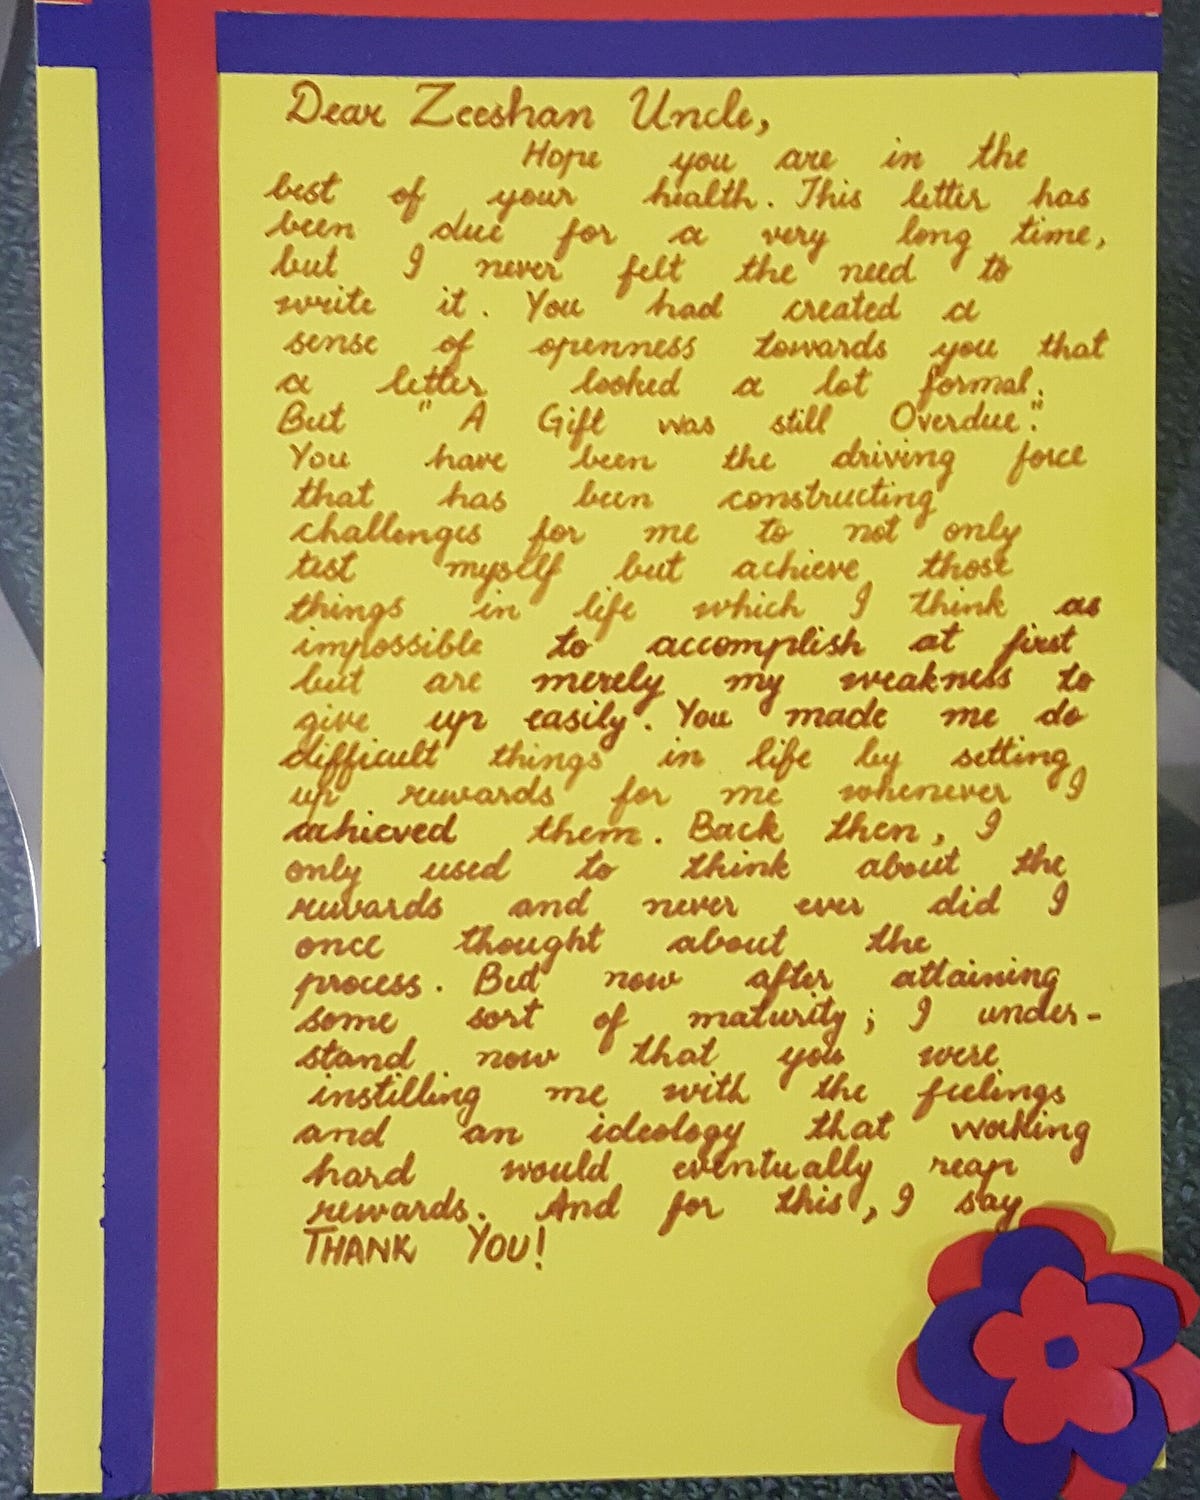 Dear Zeeshan Uncle,
Hope you are in the
best of your health. This letter has
been due for a very long time,
but I never felt the need to
write it. You had created a
sense of openness towards you that
a letter looked a lot formal.
But "A Gift was still Overdue."
You have been the driving force
that has been constructing
challenges for me to not only
test myself but achieve those
things in life which I think as
impossible to accomplish at first
but are merely my weakness to
give up easily. You made me do
difficult things in life by setting
up rewards for me whenever I
achieved them. Back then, I
only used to think about the
rewards and never ever did I
once thought about the
process. But now after attaining
some sort of maturity; I under-
stand now that you were
instilling me with the feelings
and an ideology that working
hard would eventually reap
rewards. And for this, I say
THANK YOU!